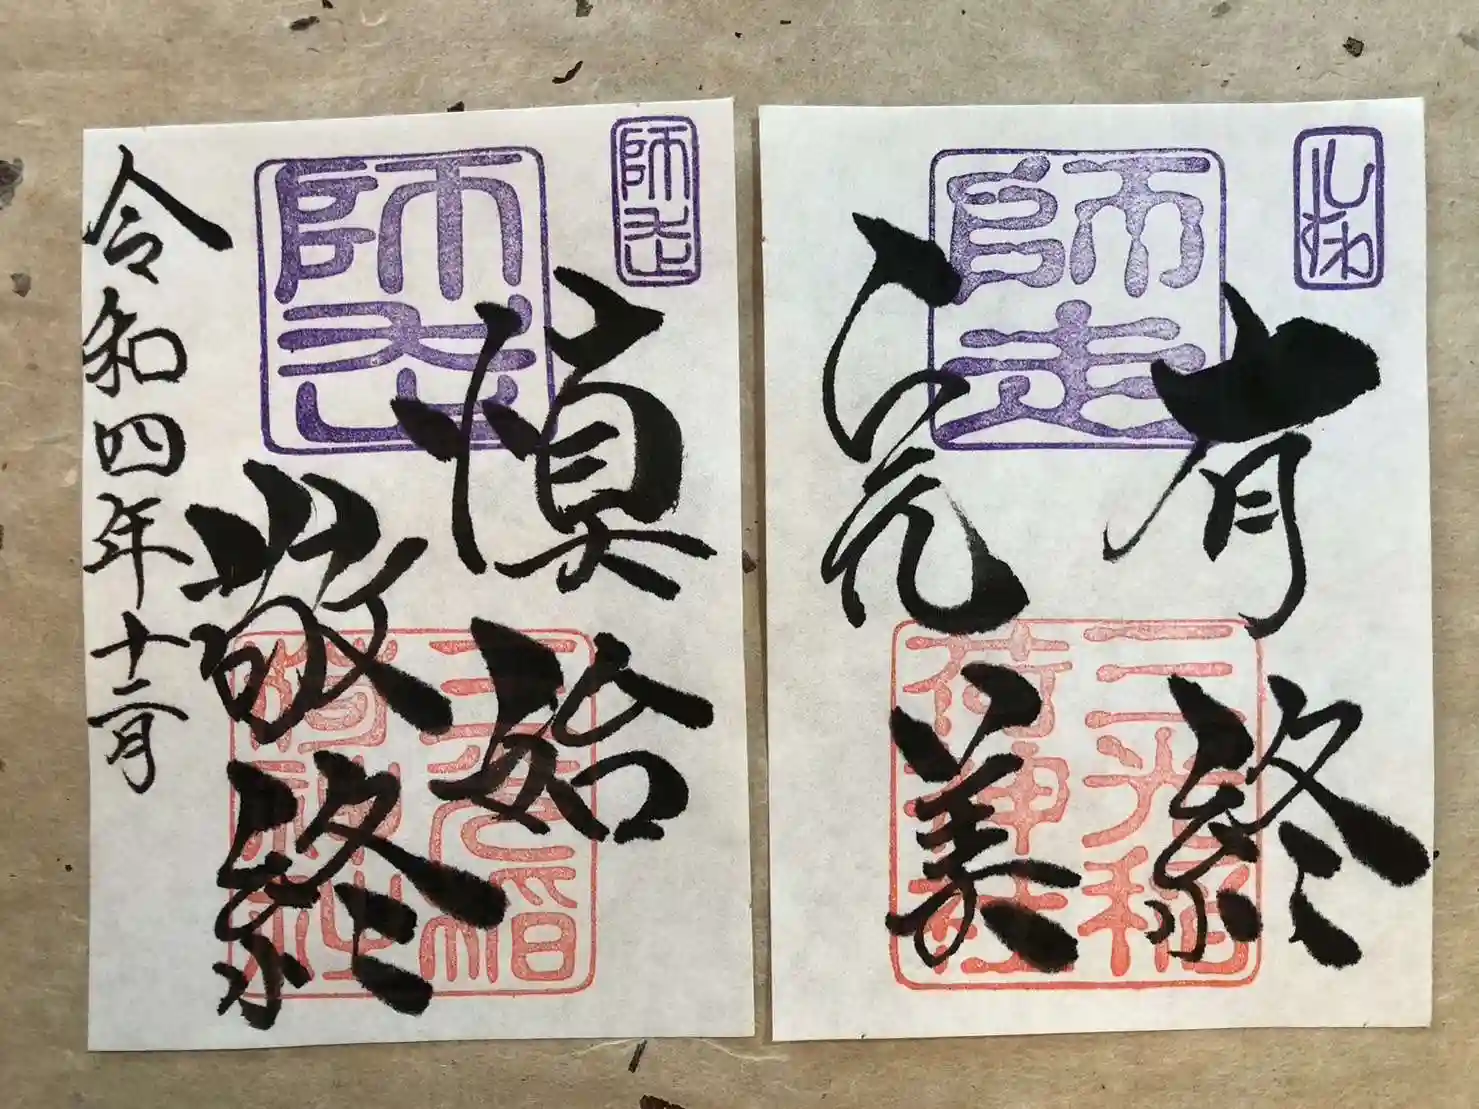 有終
完美
師走
三光稲
荷神社
師走
慎始
敬終
令和四年十二月
師走
三光稲
荷神社